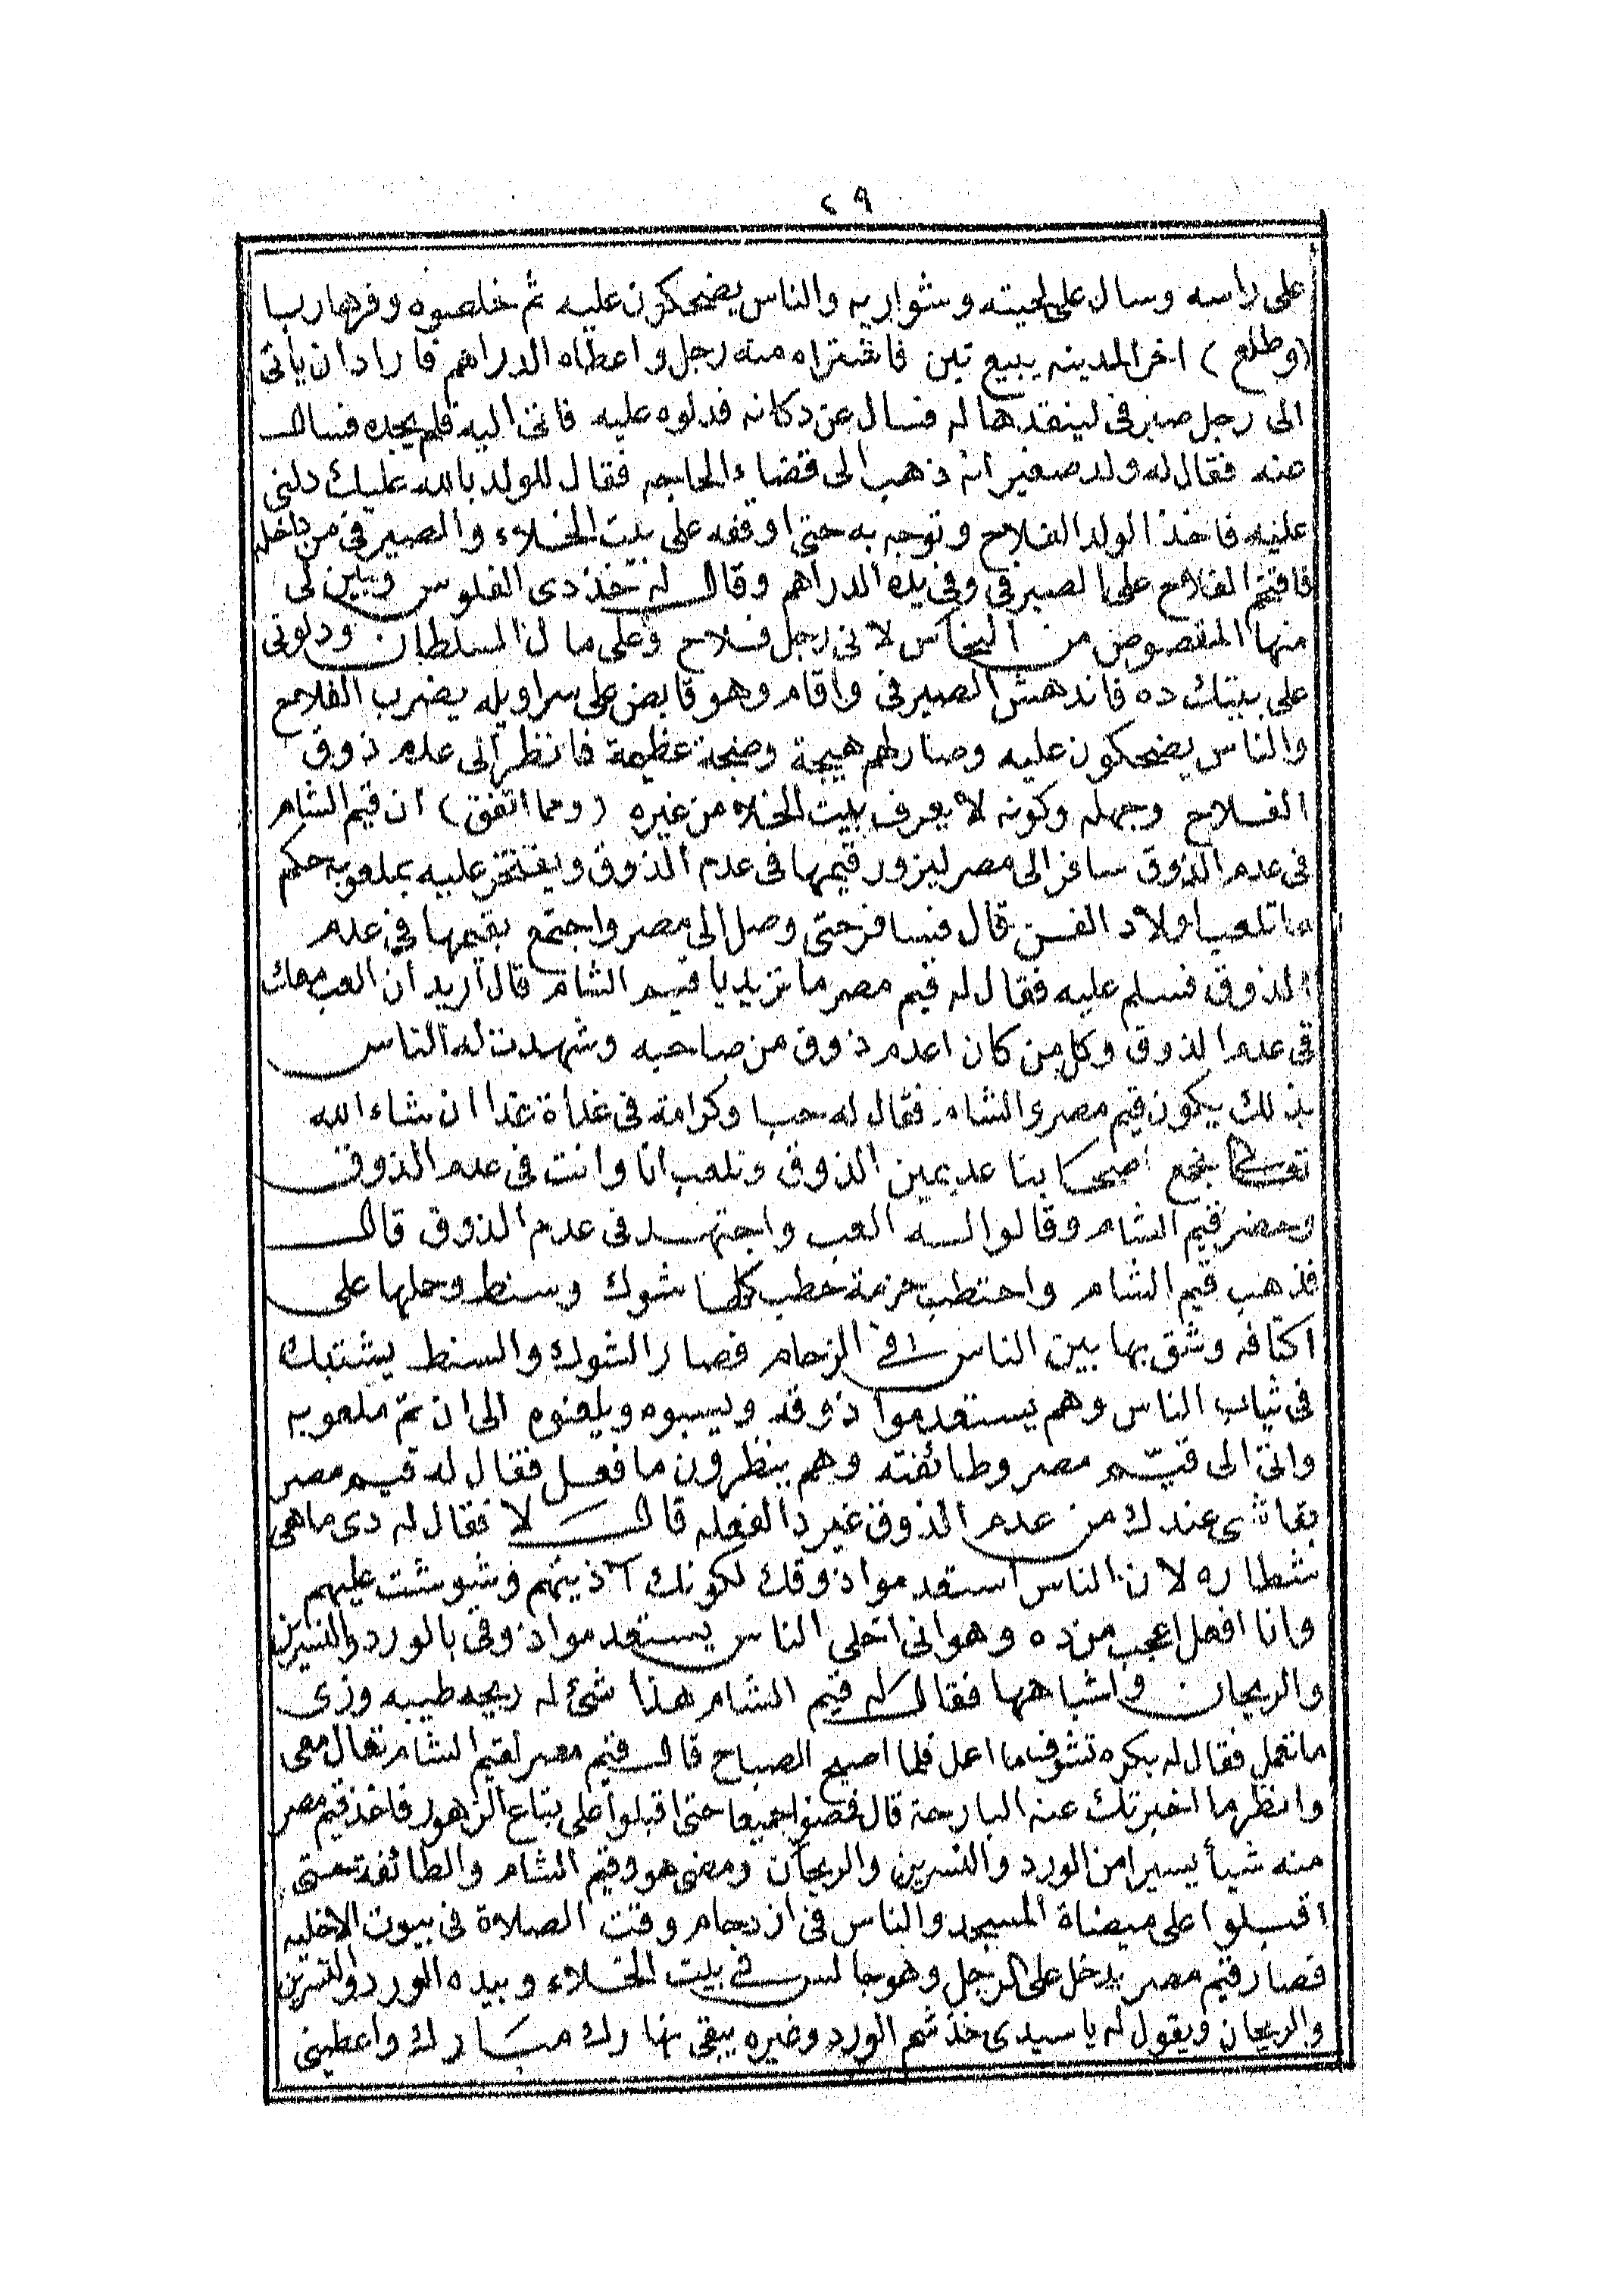 ٢٩
على راسه وسال على لحيته وشواربه والناس يضحكون عليه ثم خلصوه وفر هاربا
(وطلع) اخر المدينه يبيع تبن فاشتراه منه رجل واعطاه الدراهم فاراد ان ياتى
الى رجل صيرفى لينقدها له فسال عن دكانه فدلوه عليه فاتى اليه فلم يجده فسال
عنه فقال له ولد صغير انه ذهب الى قضاء الحاجه فقال للولد بالله عليك دلنى
عليه فاخذ الولد الفلاح وتوجه به حتى اوقفه على بيت الخلاء والصيرفى من داخله
فاقتحم الفلاح على الصيرفى وفى يده الدراهم وقال له خذ دى الفلوس وباين لى
منها المقصوص من النحاس لانى رجل فلاح وعلى مال السلطان ودلونى
على بيتك ده فاندهش الصيرفى واقام وهو قابض على سراويله يضرب الفلاح مع
والناس يضحكون عليه وصار لهم هيجة وضجة عظيمة فانظر الى عدم ذوق
الفلاح وجهله وكونه لا يعرف بيت الخلاء من غيره (ومما اتفق) ان قيم الشام
فى عدم الذوق سافر الى مصر ليزور قيمها فى عدم الذوق ويفتخر عليه بملعوبه حكم
ما تلعب اولاد الفن قال فسافر حتى وصل الى مصر واجتمع بقيمها فى عدم
الذوق فسلم عليه فقال له قيم مصر ما تريد يا قيم الشام قال اريد ان العب معك
فى عدم الذوق وكل من كان اعدم ذوق من صاحبه وشهدت له الناس
بذلك يكون قيم مصر والشام فقال له حبا وكرامة فى غداة غدا ان شاء الله
تعالى نجمع اصحابنا عديمين الذوق ونلعب انا وانت فى عدم الذوق
وحضر قيم الشام وقالوا له العب واجتهد فى عدم الذوق قال
فذهب قيم الشام واحتطب حزمة حطب كلها شوك وسنط وحملها على
اكتافه وشق بها بين الناس فى الزحام فصار الشوك والسنط يشتبك
فى ثياب الناس وهم يستعدموا ذوقه ويسبوه ويلعنوه الى ان تم ملعوبه
واتى الى قيّم مصر وطائفته وهم ينظرون ما فعل فقال له قيم مصر
بقاشى عندك من عدم الذوق غير دا الفعله قال لا فقال له دى ماهى
شطاره لان الناس استعدموا ذوقك لكونك آذيتهم وشوشت عليهم
وانا افعل اعجب من ده وهو انى اخلى الناس يستعدموا ذوقى بالورد والنسرين
والريحان واشباهها فقال له قيم الشام هذا شئ له ريحه طيبه وزى
ما تعمل فقال له بكره تشوف ما اعمل فلما اصبح الصباح قال قيم مصر لقيم الشام تعال معى
وانظر ما اخبرتك عنه البارحة قال فمضوا جميعا حتى اقبلوا على بتاع الزهور فاخذ قيم مصر
منه شيأ يسيرا من الورد والنسرين والريحان ومضى هو وقيم الشام والطائفة حتى
اقبلوا على ميضاة المسجد والناس فى ازدحام وقت الصلاة فى بيوت الاخليه
فصار قيم مصر يدخل على الرجل وهو جالس فى بيت الخلاء وبيده الورد والنسرين
والريحان ويقول له يا سيدى خذ شم الورد وغيره يبقى نهارك مبارك واعطينى